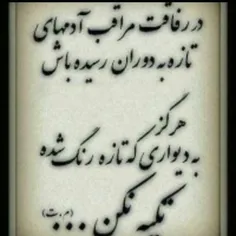 در رفاقت مراقب آدمهای
تازه به دوران رسیده باش
هرگز
به دیواری که تازه رنگ شده
تکیه نکن ...
(م.ت)